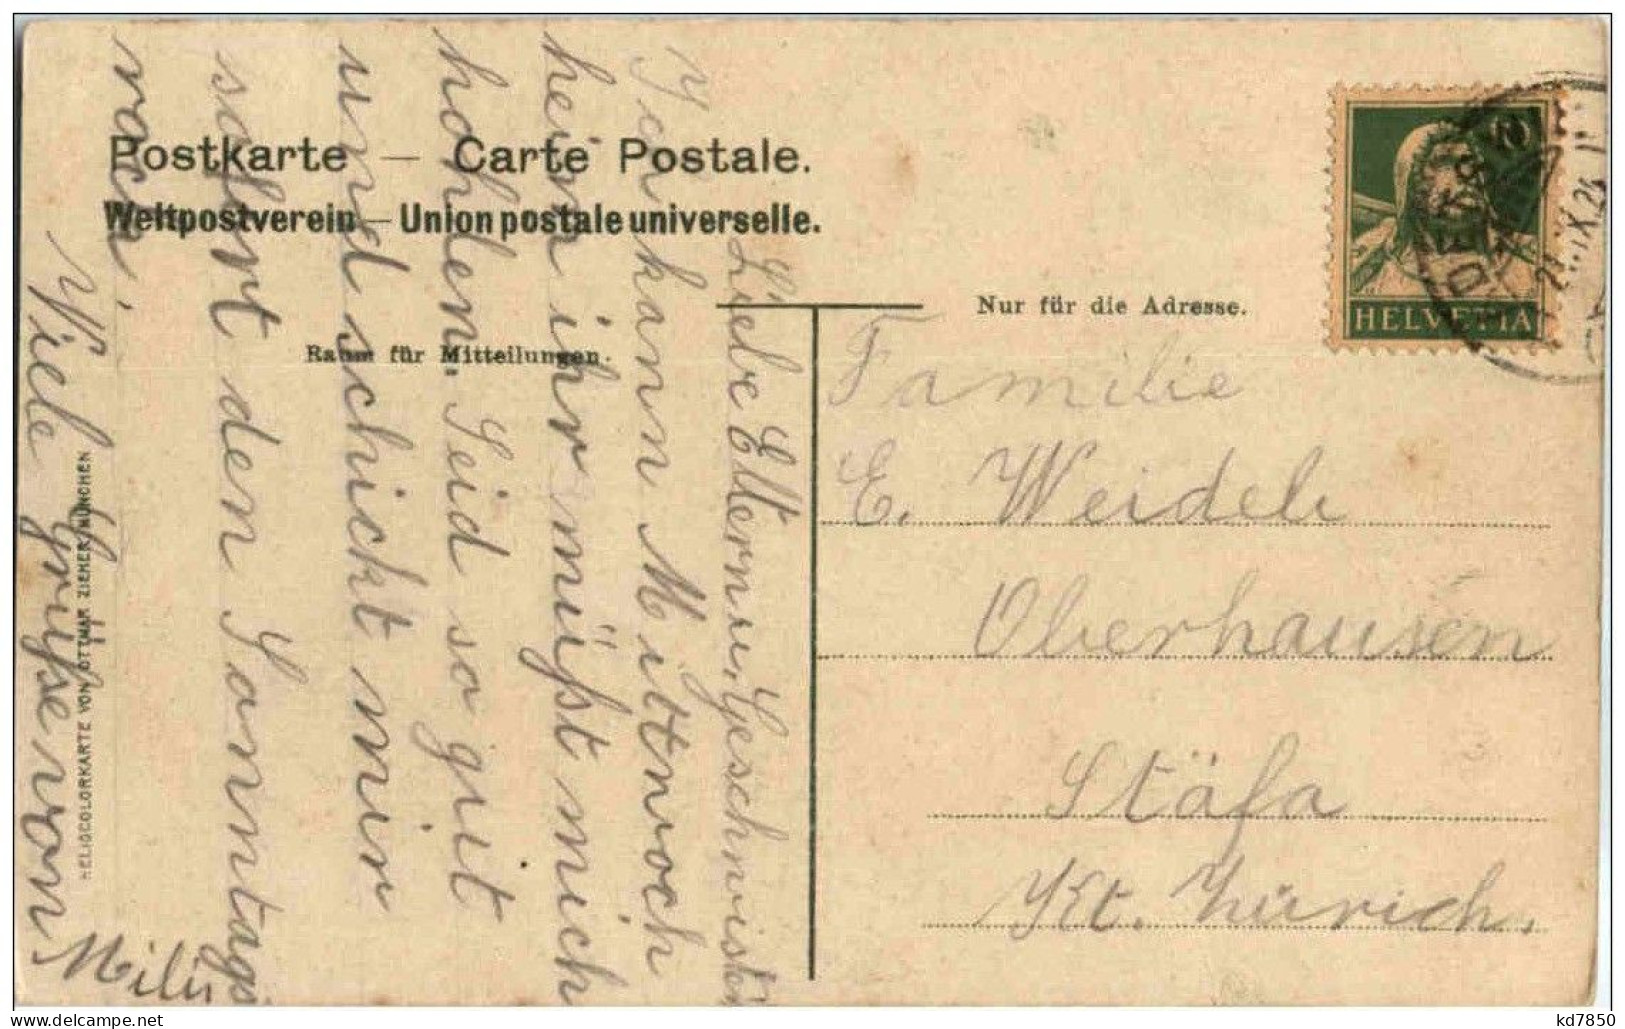 Postkarte — Carte Postale.
Weltpostverein — Union postale universelle.
Raum für Mitteilungen.
Nur für die Adresse.
HELVETIA
Liebe Eltern u. Geschwister
Ich kann Mittwoch
heim ihr müßt mich
hohlen. Seid so gut
und schickt mir
sofort den Sonntags
rock.
Viele Grüße von
Milü
Familie
E. Weideli
Oberhausen
Stäfa
Kt. Zürich.
HELIOCOLORKARTE VON OTTMAR ZIEHER, MÜNCHEN
kd7850